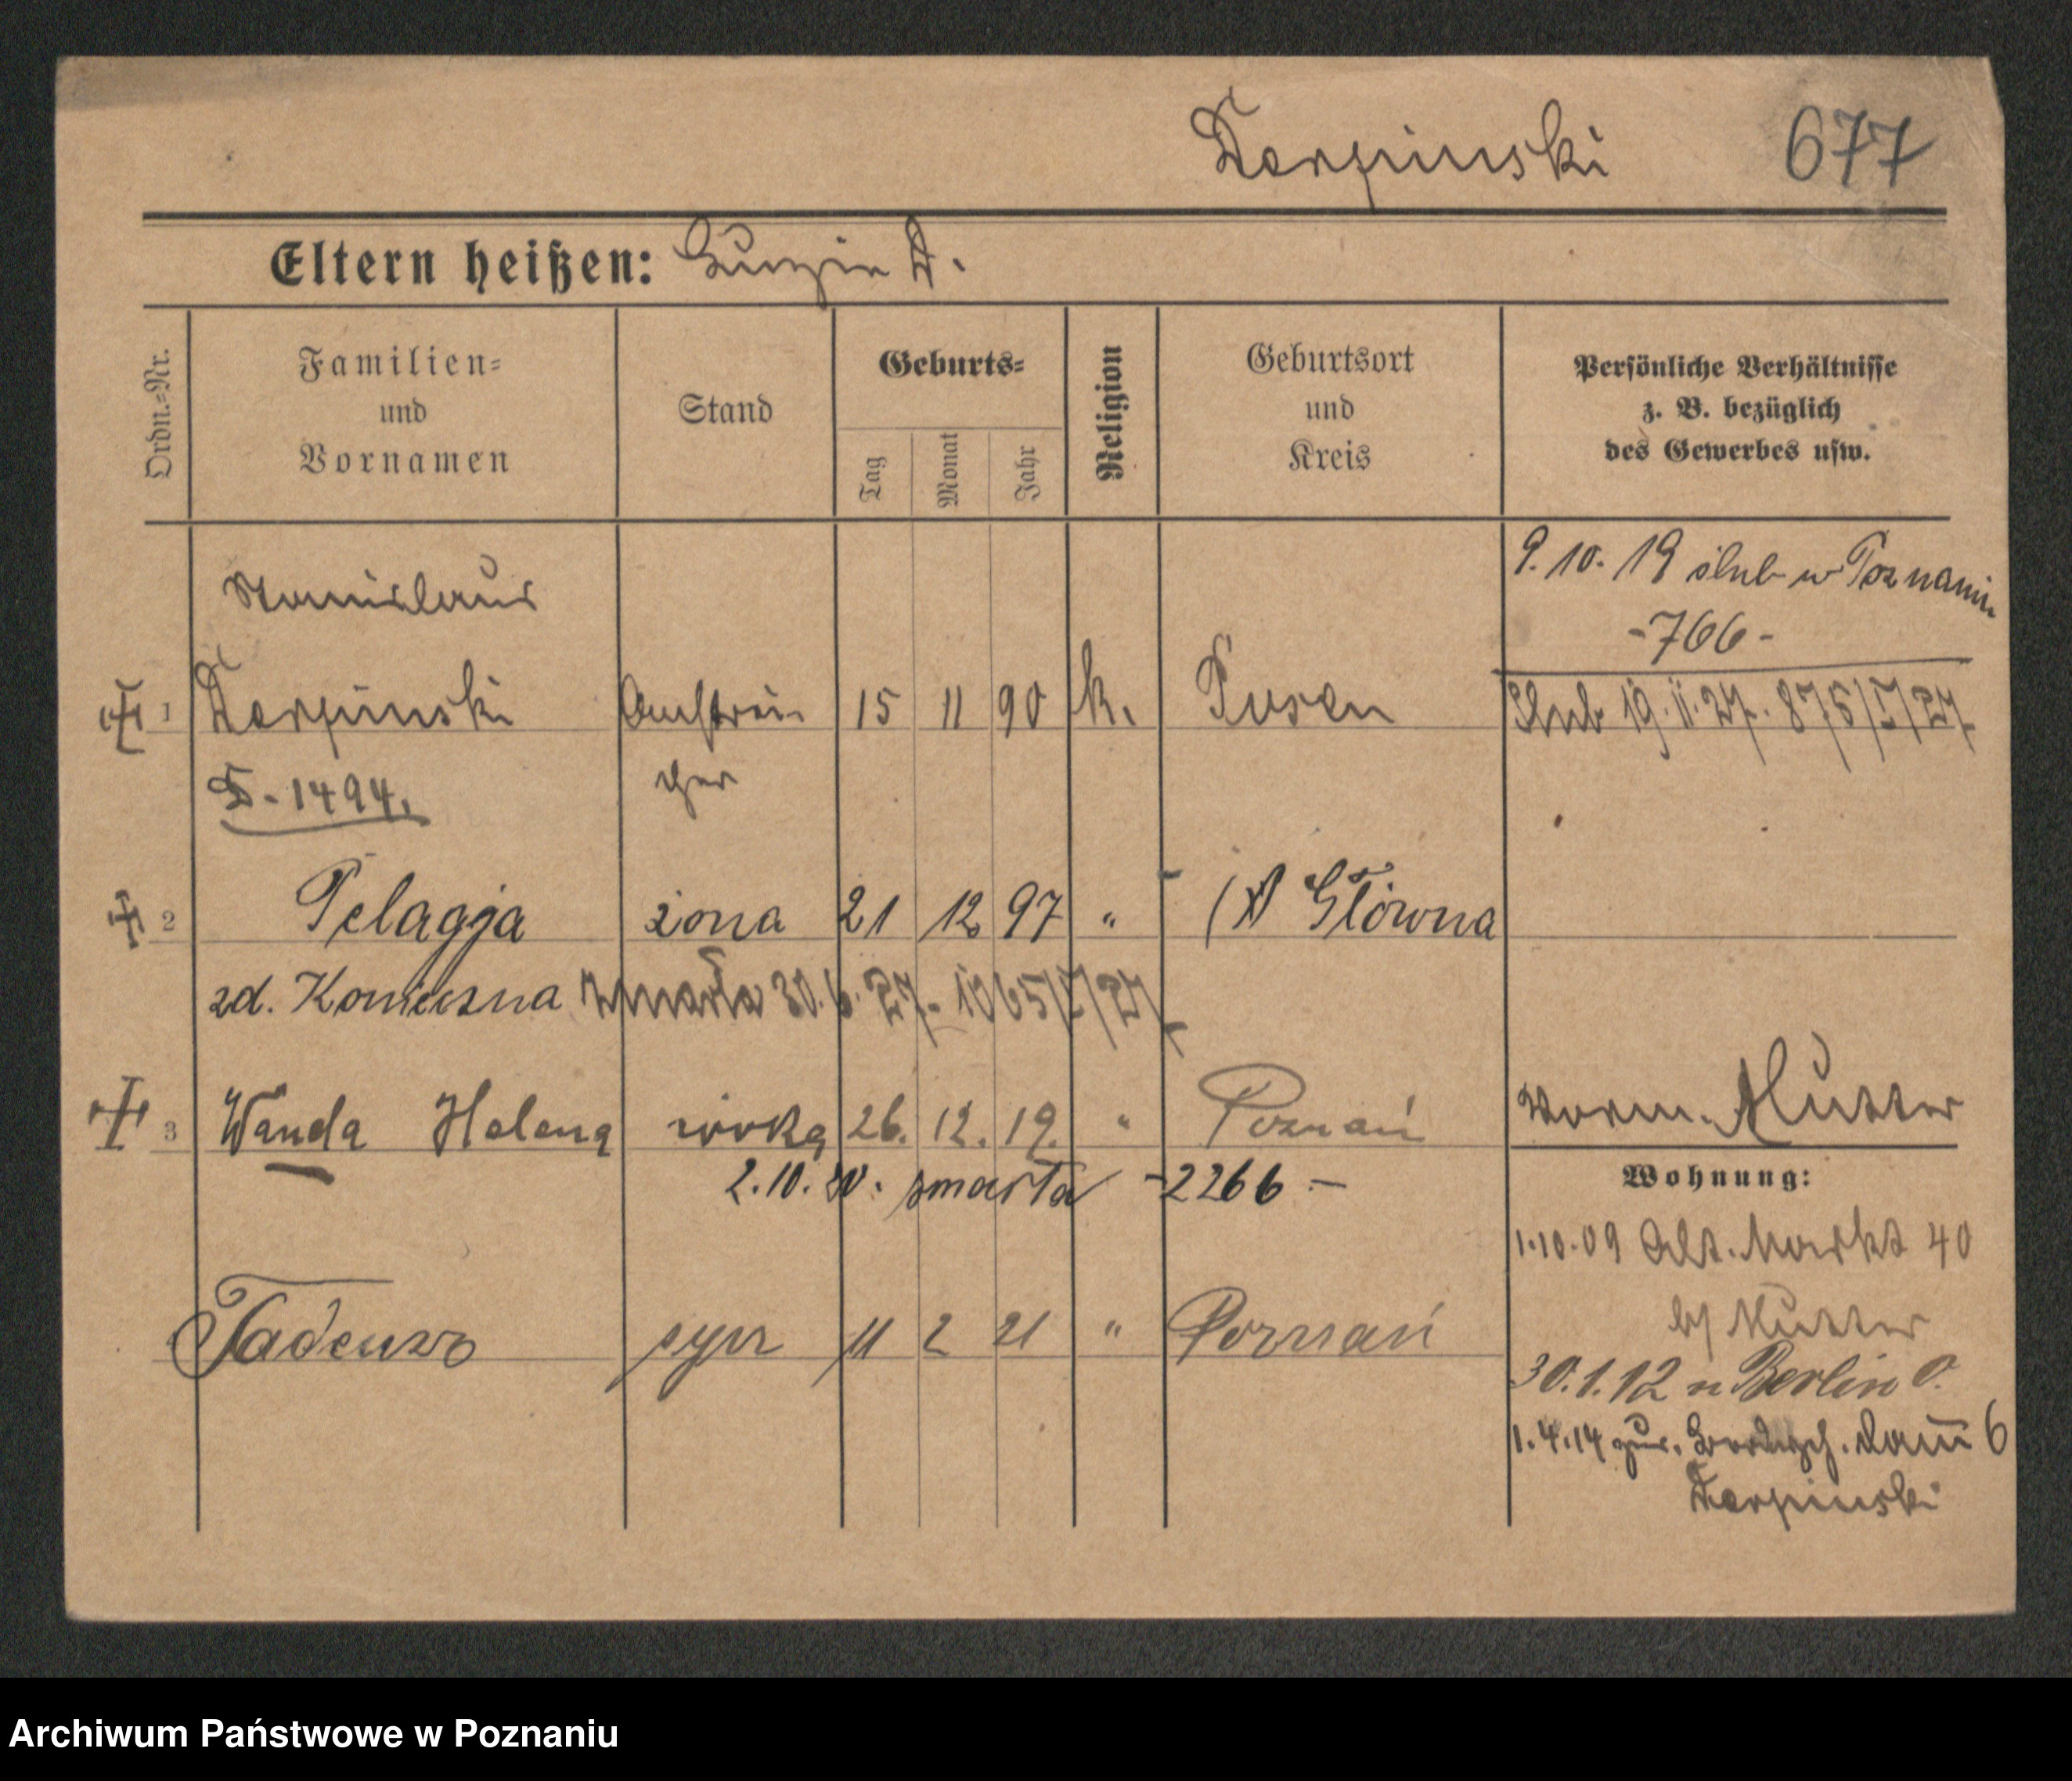 Karpinski 677
Eltern heißen: Luzia K.
Ordn.-Nr.
Familien-
und
Vornamen
Stand
Geburts-
Tag
Monat
Jahr
Religion
Geburtsort
und
Kreis
Persönliche Verhältnisse
z. B. bezüglich
des Gewerbes usw.
9.10.19 ślub w Poznaniu
-766-
Stanislaus
1 Karpinski Anstrei- 15 11 90 k. Posen
ślub 19.11.27. 875/I/27
1494. cher
2 Pelagja żona 21 12 97 " (X) Główna
zd. Konieczna zmarła 30.6.27. 1065/I/27
3 Wanda Helena córka 26. 12. 19. " Poznań
Vorm. Mutter
2.10.20. zmarła -2266-
Wohnung:
1.10.09 Alt. Markt 40
b/ Mutter
Tadeusz syn 11 2 21 " Poznań
30.1.12 n Berlin O.
1.4.14 zur. 6
Karpinski
Archiwum Państwowe w Poznaniu